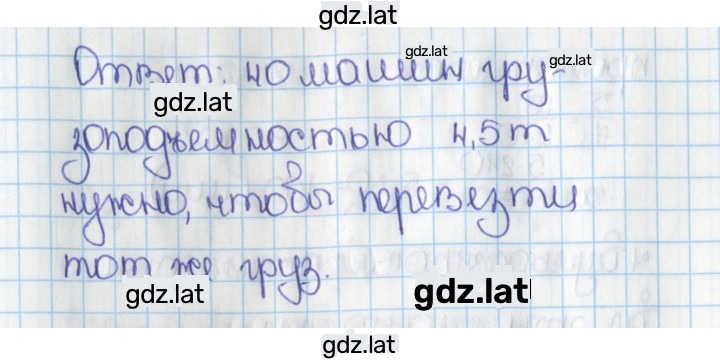 gdz.lat
Ответ: 40 машин гру-
gdz.lat
gdz.lat
gdz.lat
зоподъемностью 4,5 т
нужно, чтобы перевезти
тот же груз.
gdz.lat
gdz.lat
gdz.lat